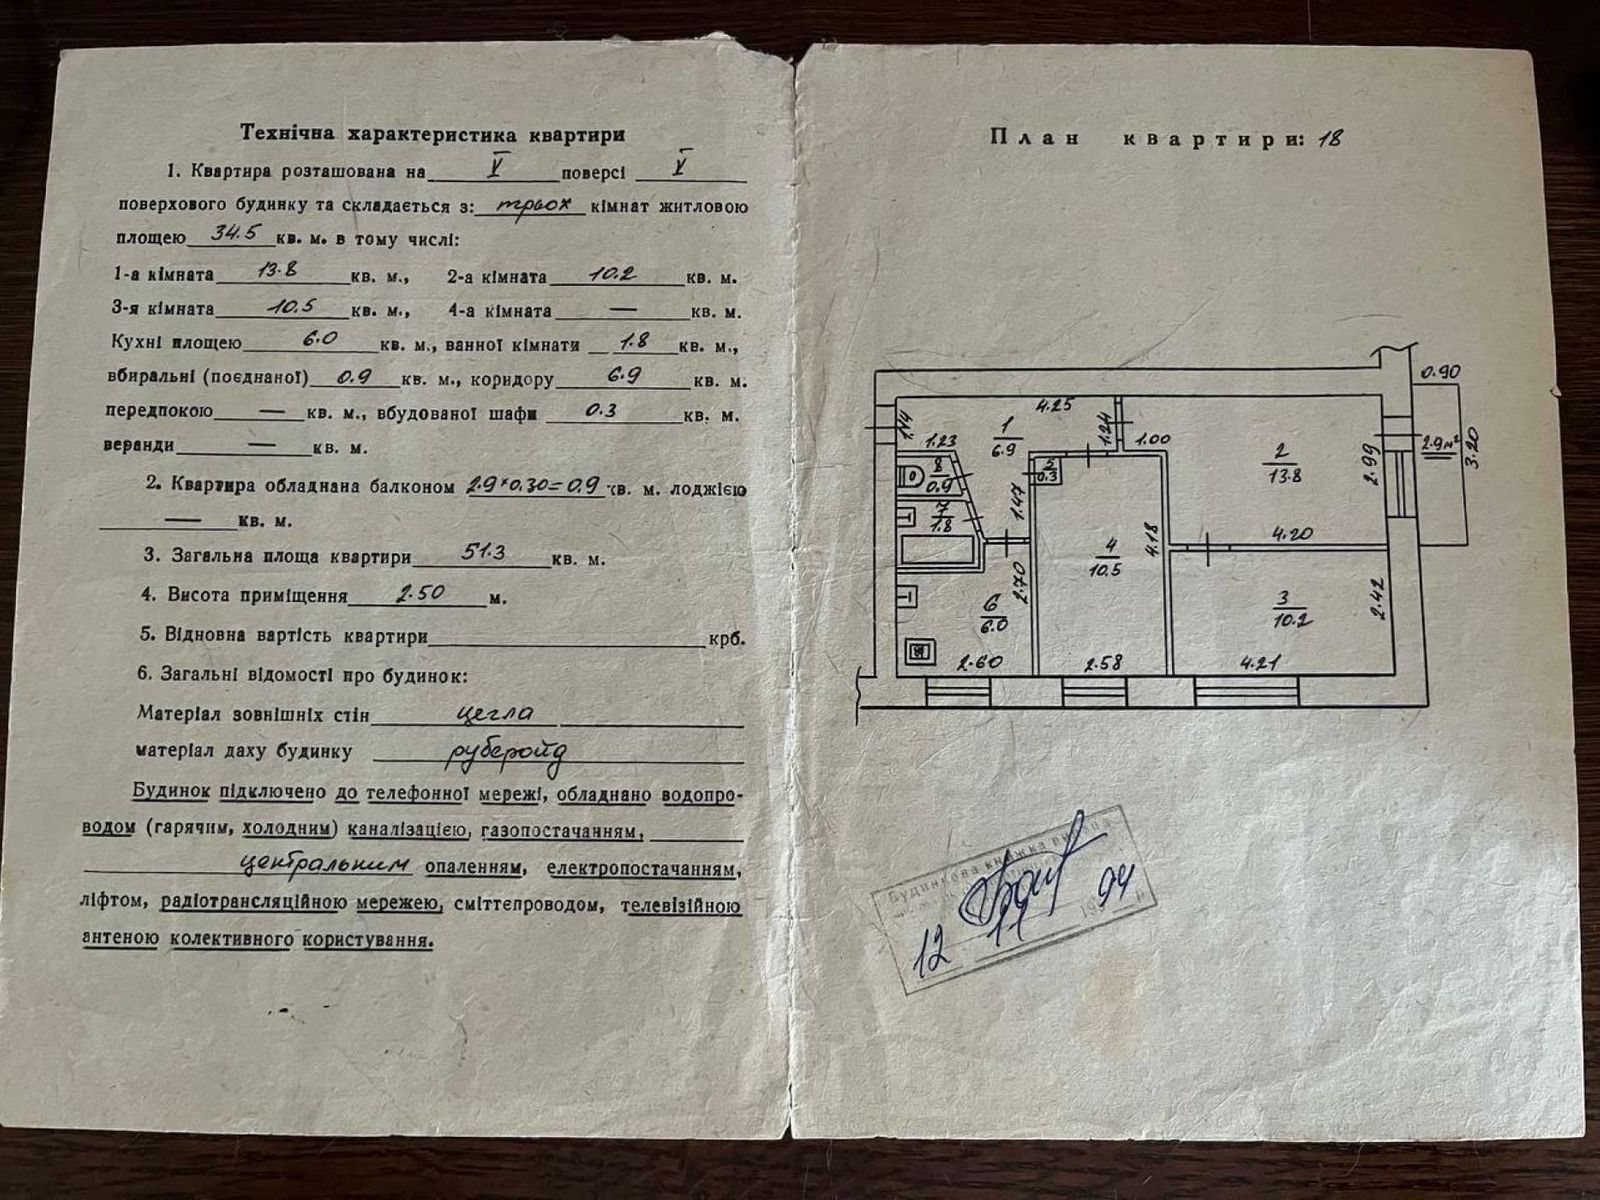 Технічна характеристика квартири
1. Квартира розташована на V поверсі V
поверхового будинку та складається з: трьох кімнат житловою
площею 34.5 кв. м. в тому числі:
1-а кімната 13.8 кв. м., 2-а кімната 10.2 кв. м.
3-я кімната 10.5 кв. м., 4-а кімната — кв. м.
Кухні площею 6.0 кв. м., ванної кімнати 1.8 кв. м.,
вбиральні (поєднаної) 0.9 кв. м., коридору 6.9 кв. м.
передпокою — кв. м., вбудованої шафи 0.3 кв. м.
веранди — кв. м.
2. Квартира обладнана балконом 2.9*0.30=0.9 кв. м. лоджією
— кв. м.
3. Загальна площа квартири 51.3 кв. м.
4. Висота приміщення 2.50 м.
5. Відновна вартість квартири крб.
6. Загальні відомості про будинок:
Матеріал зовнішніх стін цегла
матеріал даху будинку рубероїд
Будинок підключено до телефонної мережі, обладнано водопро-
водом (гарячим, холодним) каналізацією, газопостачанням,
центральним опаленням, електропостачанням,
ліфтом, радіотрансляційною мережею, сміттєпроводом, телевізійною
антеною колективного користування.
План квартири: 18
0.90
4.25
1.14
1
6.9
1.24
1.00
1.23
2
13.8
2.99
2.9м²
3.20
8
0.9
5
0.3
1.47
7
1.8
4.18
4.20
4
10.5
2.70
6
6.0
3
10.2
2.42
2.60
2.58
4.21
Будинкова книжка
12 11 1994